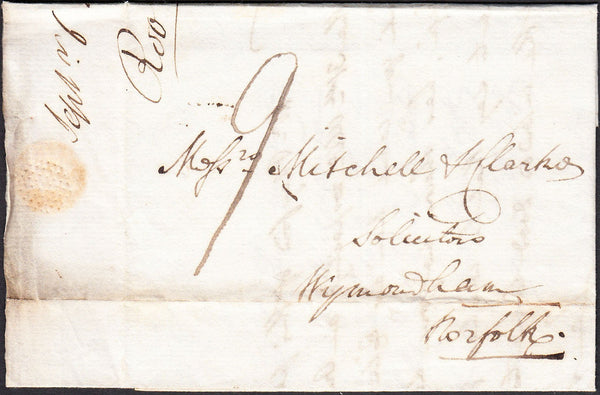 9
Messrs Mitchell & Clarke
Solicitors
Wymondham
Norfolk.